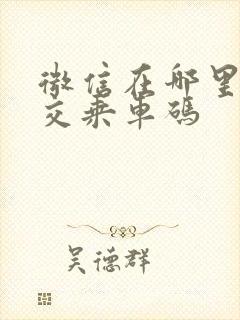 微信在哪里
交乘车码
吴德群